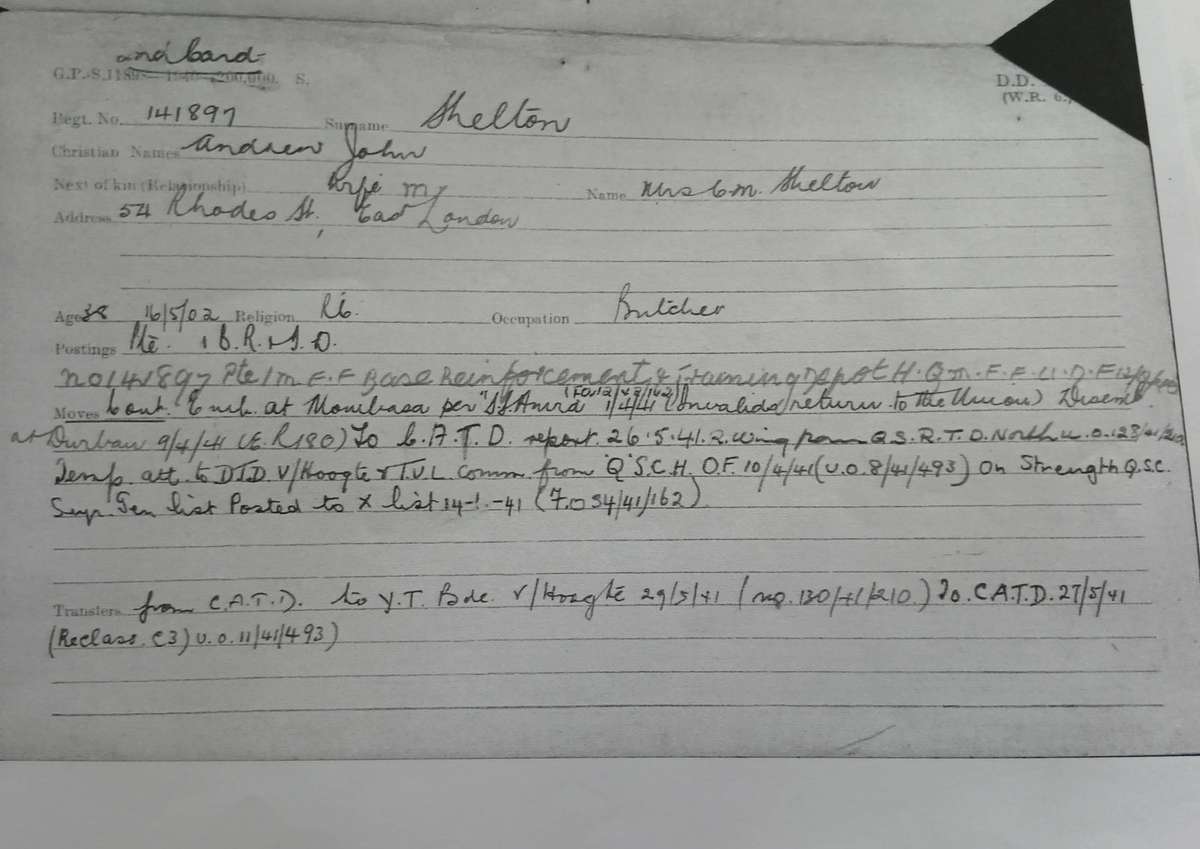 2nd card
G.P.-S.11898—1940—200,000. S. D.D.
(W.R. 6.)
Regt. No. 141897 Surname Shelton
Christian Names Andrew John
Next of kin (Relationship) Wife Name Mrs C.M. Shelton
Address 54 Rhodes St. East London
Age 38 16/5/02 Religion Occupation Butcher
Postings Pte. 1 B.R.&T.D.
No 141897 Pte 1 M.E.F Base Reinforcement & Training Depot H.Q M.E.F. U.D.F
Moves Cont. Emb. at Mombasa per "S.S. Amra" 1/4/41 (Invalids return to the Union) Disemb.
at Durban 9/4/41 (E.R180) To C.A.T.D. report. 26.5.41. 2. Wing from Q.S.R.T.D. North
Temp. att. to DTD V/Hoogte & T.V.L Comm. from "Q" S.C.H.O.F. 10/4/41 (U.O.8/41/493) On Strength Q.S.C.
Gen list Posted to X list 14-1-41 (7.0 54/41/162)
Transfers from C.A.T.D. to Y.T. Bde. V/Hoogte 29/5/41 To. C.A.T.D. 27/5/41
(Reclass. C3) U.O. 11/41/493)